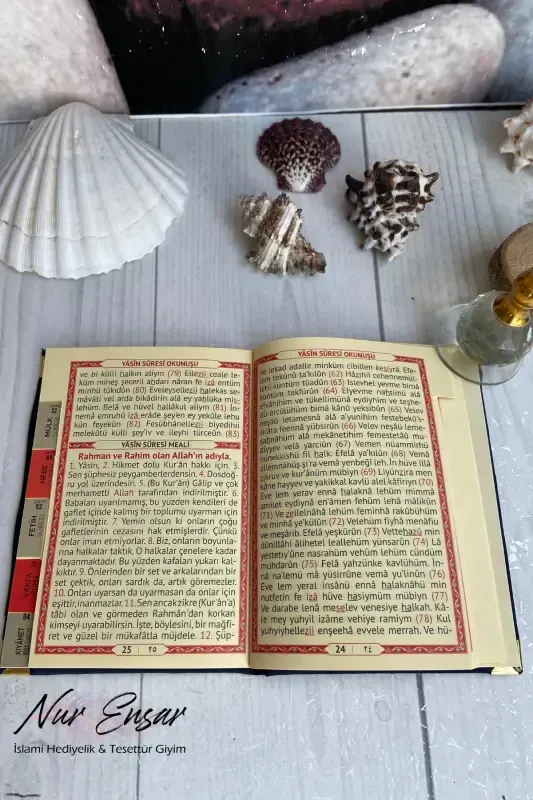 YÂSÎN SÛRESİ OKUNUŞU
ve lekad adalle minküm cibillen kesiyrâ. Efe-
lem tekûnû ta'kılûn (62) Hâzihî cehennemül-
letî küntüm tûadûn (63) Islevhel yevme bimâ
küntüm tekfürûn (64) Elyevme nahtimü alâ
efvâhihim ve tükellimünâ eydiyhim ve teşhe-
dü ercülühüm bimâ kânû yeksibûn (65) Velev
neşâü letamesnâ alâ a'yunihim festebekû's-
sırâta feennâ yübsırûn (66) Velev neşâü leme-
sahnâhüm alâ mekânetihim femestetâû mu-
dıyyev velâ yarciûn (67) Vemen nüammirhü
nünekkishü fil halk. Efelâ ya'kılûn (68) Vemâ
allemnâhüş şi'ra vemâ yenbeğî leh. İn hüve illâ
zikruv ve kur'ânüm mübiyn (69) Liyünzira men
kâne hayyev ve yakikkal kavlü alel kâfiriyn (70)
Eve lem yerav ennâ halaknâ lehüm mimmâ
amilet eydiynâ en'âmen fehüm lehâ mâlikûn
(71) Ve zellelnâhâ lehüm feminhâ rakûbühüm
ve minhâ ye'külûn (72) Velehüm fiyhâ menâfiu
ve meşârib. Efelâ yeşkürûn (73) Vettehazû min
dûnillâhi âliheten leallehüm yünsarûn (74) Lâ
yestetıy'ûne nasrahüm vehüm lehüm cündüm
muhdarûn (75) Felâ yahzünke kavlühüm. İn-
nâ na'lemü mâ yüsirrûne vemâ yu'linûn (76)
Eve lem yeral insânü ennâ halaknâhü min
nutfetin fe izâ hüve hasiymüm mübiyn (77)
Ve darabe lenâ meselev venesiye halkah. Kâ-
le mey yuhyil izâme vehiye ramiym (78) Kul
yuhyiyhellezii enşeehâ evvele merrah. Ve hü-
24 | ٢٤
YÂSÎN SÛRESİ OKUNUŞU
ve bi külli halkın aliym (79) Ellezii ceale le-
küm mineş şeceril ahdari nâran fe izâ entüm
minhü tûkıdûn (80) Eveleysellezii halekas se-
mâvâti vel arda bikâdirin alâ ey yahluka mis-
lehüm. Belâ ve hüvel hallâkul aliym (81) İn-
nemâ emruhû izâ erâde şeyen ey yekûle lehû
kün feyekûn (82) Fesübhânellezii biyedihii
melekûtü külli şey'iv ve ileyhi türceûn (83)
YÂSÎN SÛRESİ MEÂLİ
Rahman ve Rahim olan Allah'ın adıyla.
1. Yâsin, 2. Hikmet dolu Kur'ân hakkı için, 3.
Sen şüphesiz peygamberlerdensin. 4. Dosdoğ-
ru yol üzerindesin. 5. (Bu Kur'ân) Gâlip ve çok
merhametli Allah tarafından indirilmiştir. 6.
Babaları uyarılmamış, bu yüzden kendileri de
gaflet içinde kalmış bir toplumu uyarman için
indirilmiştir. 7. Yemin olsun ki onların çoğu
gafletlerinin cezasını hak etmişlerdir. Çünkü
onlar iman etmiyorlar. 8. Biz, onların boyunla-
rına halkalar taktık. O halkalar çenelere kadar
dayanmaktadır. Bu yüzden kafaları yukarı kal-
kıktır. 9. Önlerinden bir set ve arkalarından bir
set çektik, onları sardık da, artık göremezler.
10. Onları uyarsan da uyarmasan da onlar için
eşittir, inanmazlar. 11. Sen ancak zikre (Kur'ân'a)
tâbi olan ve görmeden Rahmân'dan korkan
kimseyi uyarabilirsin. İşte, böylesini, bir mağfi-
ret ve güzel bir mükâfatla müjdele. 12. Şüp-
25 | ٢٥
MÜLK
NEBE
FETİH
KIYÂMET
Nur Ensar
İslami Hediyelik & Tesettür Giyim